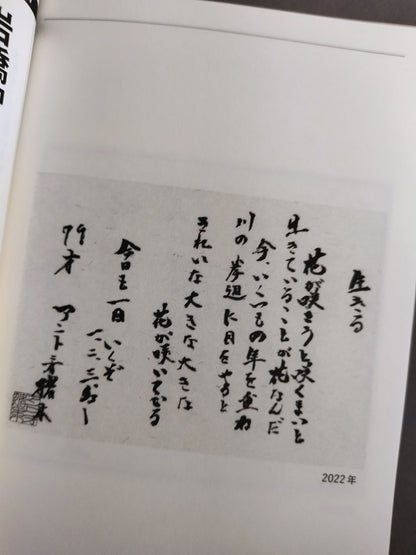 生きる
花が咲こうと咲くまいと
生きていることが花なんだ
今、いくつもの年を重ね
川の岸辺に目をやると
きれいな大きな大きな
花が咲いている
今日も一日いくぞ
一、二、三、ダー
79才 アントニオ猪木
2022年